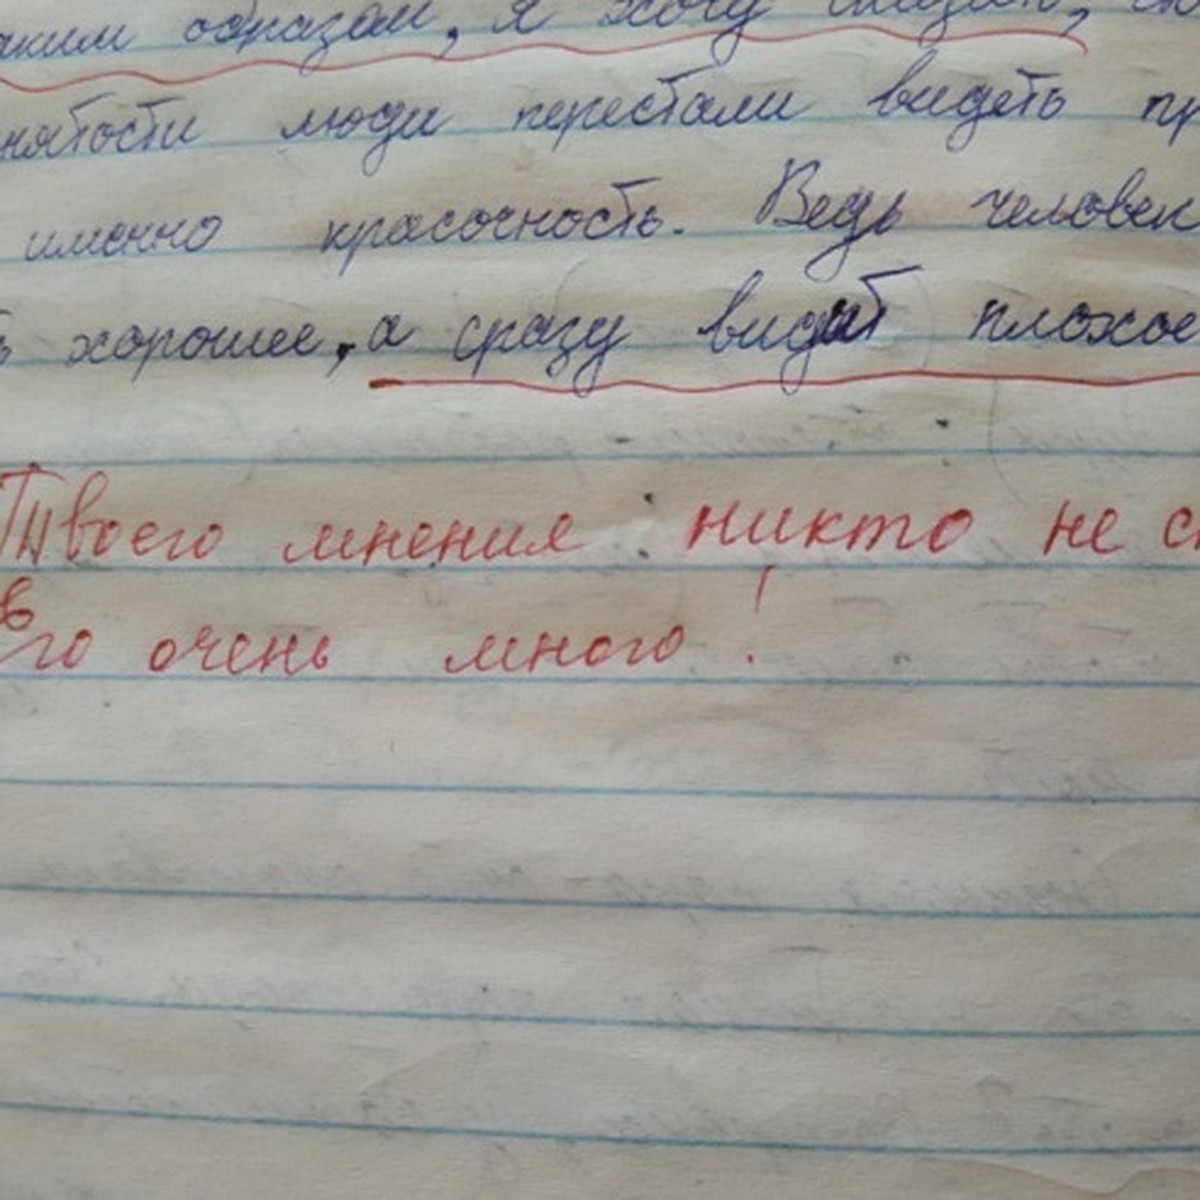 аким образом, я хочу сказать,
нятости люди перестали видеть пр
именно красочность. Ведь человек
ь хорошее, а сразу видит плохое
Твоего мнения никто не сп
Его очень много!